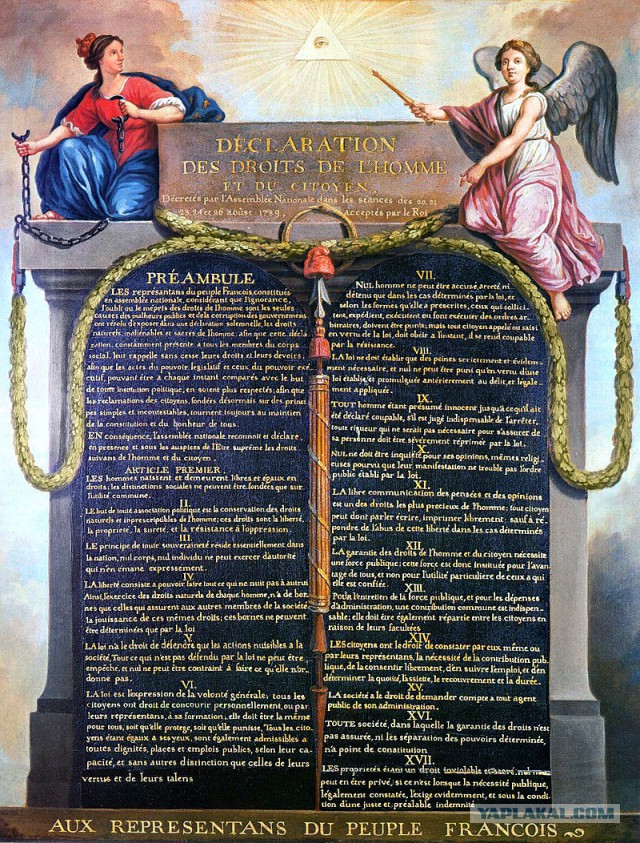 DÉCLARATION
DES DROITS DE L'HOMME
ET DU CITOYEN,
Décretés par l'Assemblée Nationale dans les séances des 20, 21
23, 24 et 26 août 1789, acceptés par le Roi
PRÉAMBULE
LES représantans du peuple François, constitués
en assemblée nationale, considérant que l'ignorance,
l'oubli ou le mépris des droits de l'homme sont les seules
causes des malheurs publics et de la corruption des gouvernemens
ont résolu d'exposer dans une déclaration solemnelle, les droits
naturels, inaliénables et sacrés de l'homme; afin que cette décla-
ration, constamment présente a tous les membres du corps
social, leur rappelle sans cesse leurs droits et leurs devoirs;
afin que les actes du pouvoir legislatif et ceux du pouvoir exé-
cutif, pouvant être a chaque instant comparés avec le but
de toute institution politique, en soient plus respectés; afin que
les reclamations des citoyens, fondées désormais sur des princi-
pes simples et incontestables, tournent toujours au maintien
de la constitution et du bonheur de tous.
EN conséquence, l'assemblée nationale reconnoit et déclare,
en présence et sous les auspices de l'Etre suprême les droits
suivans de l'homme et du citoyen.
ARTICLE PREMIER.
LES hommes naissent et demeurent libres et égaux en
droits; les distinctions sociales ne peuvent être fondées que sur
l'utilité commune.
II.
LE but de toute association politique est la conservation des droits
naturels et inprescriptibles de l'homme; ces droits sont la liberté,
la propriété, la sureté, et la résistance à l'oppression.
III.
LE principe de toute souveraineté réside essentiellement dans
la nation, nul corps, nul individu ne peut exercer d'autorité
qui n'en émane expressement.
IV.
LA liberté consiste a pouvoir faire tout ce qui ne nuit pas à autrui
Ainsi, l'exercice des droits naturels de chaque homme, n'a de bor-
nes que celles qui assurent aux autres membres de la société
la jouissance de ces mêmes droits; ces bornes ne peuvent
être déterminées que par la loi.
V.
LA loi n'a le droit de défendre que les actions nuisibles a la
société. Tout ce qui n'est pas défendu par la loi ne peut être
empêché, et nul ne peut être contraint à faire ce qu'elle n'or-
donne pas.
VI.
LA loi est l'expression de la volonté générale; tous les
citoyens ont droit de concourir personnellement, ou par
leurs représentans, à sa formation; elle doit être la même
pour tous, soit qu'elle protege, soit qu'elle punisse. Tous les cito-
yens étant égaux à ses yeux, sont également admissibles à
toutes dignités, places et emplois publics, selon leur ca-
pacité, et sans autres distinction que celles de leurs
vertus et de leurs talens
VII.
NUL homme ne peut être accusé, arreté, ni
détenu que dans les cas déterminés par la loi, et
selon les formes qu'elle à prescrites, ceux qui sollici-
tent, expédient, exécutent ou font exécuter des ordres ar-
bitraires, doivent être punis; mais tout citoyen appelé ou saisi
en vertu de la loi, doit obéir a l'instant, il se rend coupable
par la résistance.
VIII.
LA loi ne doit établir que des peines strictement et évidem-
ment nécessaire, et nul ne peut être puni qu'en vertu d'une
loi établie, et promulguée antérierement au délit, et légale-
ment appliquée.
IX.
TOUT homme étant présumé innocent jusqu'a ce qu'il ait
été déclaré coupable, s'il est jugé indispensable de l'arrêter,
toute rigueur qui ne serait pas nécessaire pour s'assurer de
sa personne doit être sévèrement réprimée par la loi.
X.
NUL ne doit être inquiété pour ses opinions, mêmes religi-
euses pourvu que leur manifestation ne trouble pas l'ordre
public établi par la loi.
XI.
LA libre communication des pensées et des opinions
est un des droits les plus precieux de l'homme; tout citoyen
peut dont parler, écrire, imprimer librement; sauf à ré-
pondre de l'abus de cette liberté dans les cas déterminés
par la loi.
XII.
LA garantie des droits de l'homme et du citoyen nécessite
une force publique; cette force est donc instituée pour l'avan-
tage de tous, et non pour l'utilité particuliere de ceux a qui
elle est confiée.
XIII.
POUR l'entretien de la force publique, et pour les dépenses
d'administration, une contribution commune est indispen-
sable; elle doit être également répartie entre les citoyens en
raison de leurs facultées
XIV.
LES citoyens ont le droit de constater par eux même ou
par leurs représentans, la nécessité de la contribution pub-
lique, de la consentir librement, d'en suivre l'emploi, et d'en
déterminer la quotité, l'assiette, le recouvrement et la durée.
XV.
LA société a le droit de demander compte a tout agent
public de son administration.
XVI.
TOUTE société, dans laquelle la garantie des droits n'est
pas assurée, ni les séparation des pouvoirs déterminée,
n'a point de constitution
XVII.
LES propriétés étant un droit inviolable et sacré, nul ne
peut en être privé, si ce n'est lorsque la nécessité publique,
légalement constatée, l'exige evidemment, et sous la condi-
tion d'une juste et préalable indemnité
YAPLAKAL.COM
AUX REPRESENTANS DU PEUPLE FRANCOIS